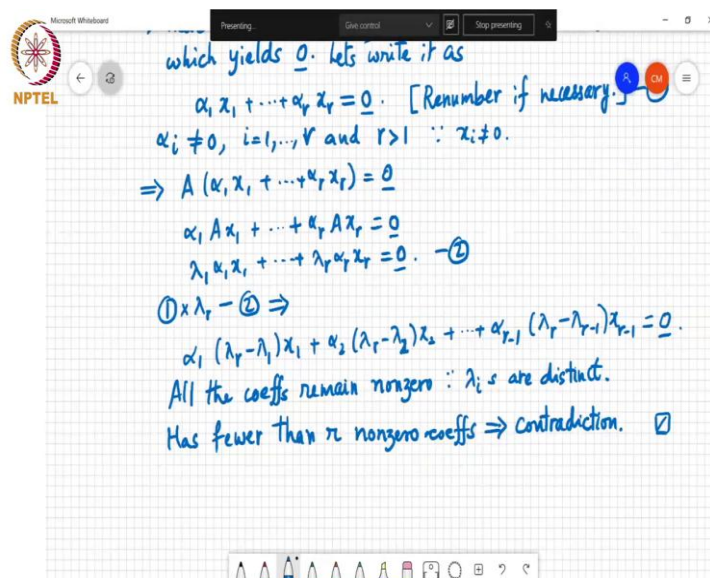 Microsoft Whiteboard
Presenting...
Give control
Stop presenting
NPTEL
which yields 0. Lets write it as
α₁x₁ + ⋯ + αᵣxᵣ = 0. [Renumber if necessary.] –
CM
αᵢ ≠ 0, i=1,..,r and r>1 ∵ xᵢ≠0.
⇒ A(α₁x₁ + ⋯ + αᵣxᵣ) = 0
α₁Ax₁ + ⋯ + αᵣAxᵣ = 0
λ₁α₁x₁ + ⋯ + λᵣαᵣxᵣ = 0. –②
①×λᵣ – ② ⇒
α₁(λᵣ–λ₁)x₁ + α₂(λᵣ–λ₂)x₂ + ⋯ + αᵣ₋₁(λᵣ–λᵣ₋₁)xᵣ₋₁ = 0.
All the coeffs remain nonzero ∵ λᵢs are distinct.
Has fewer than r nonzero coeffs ⇒ contradiction.